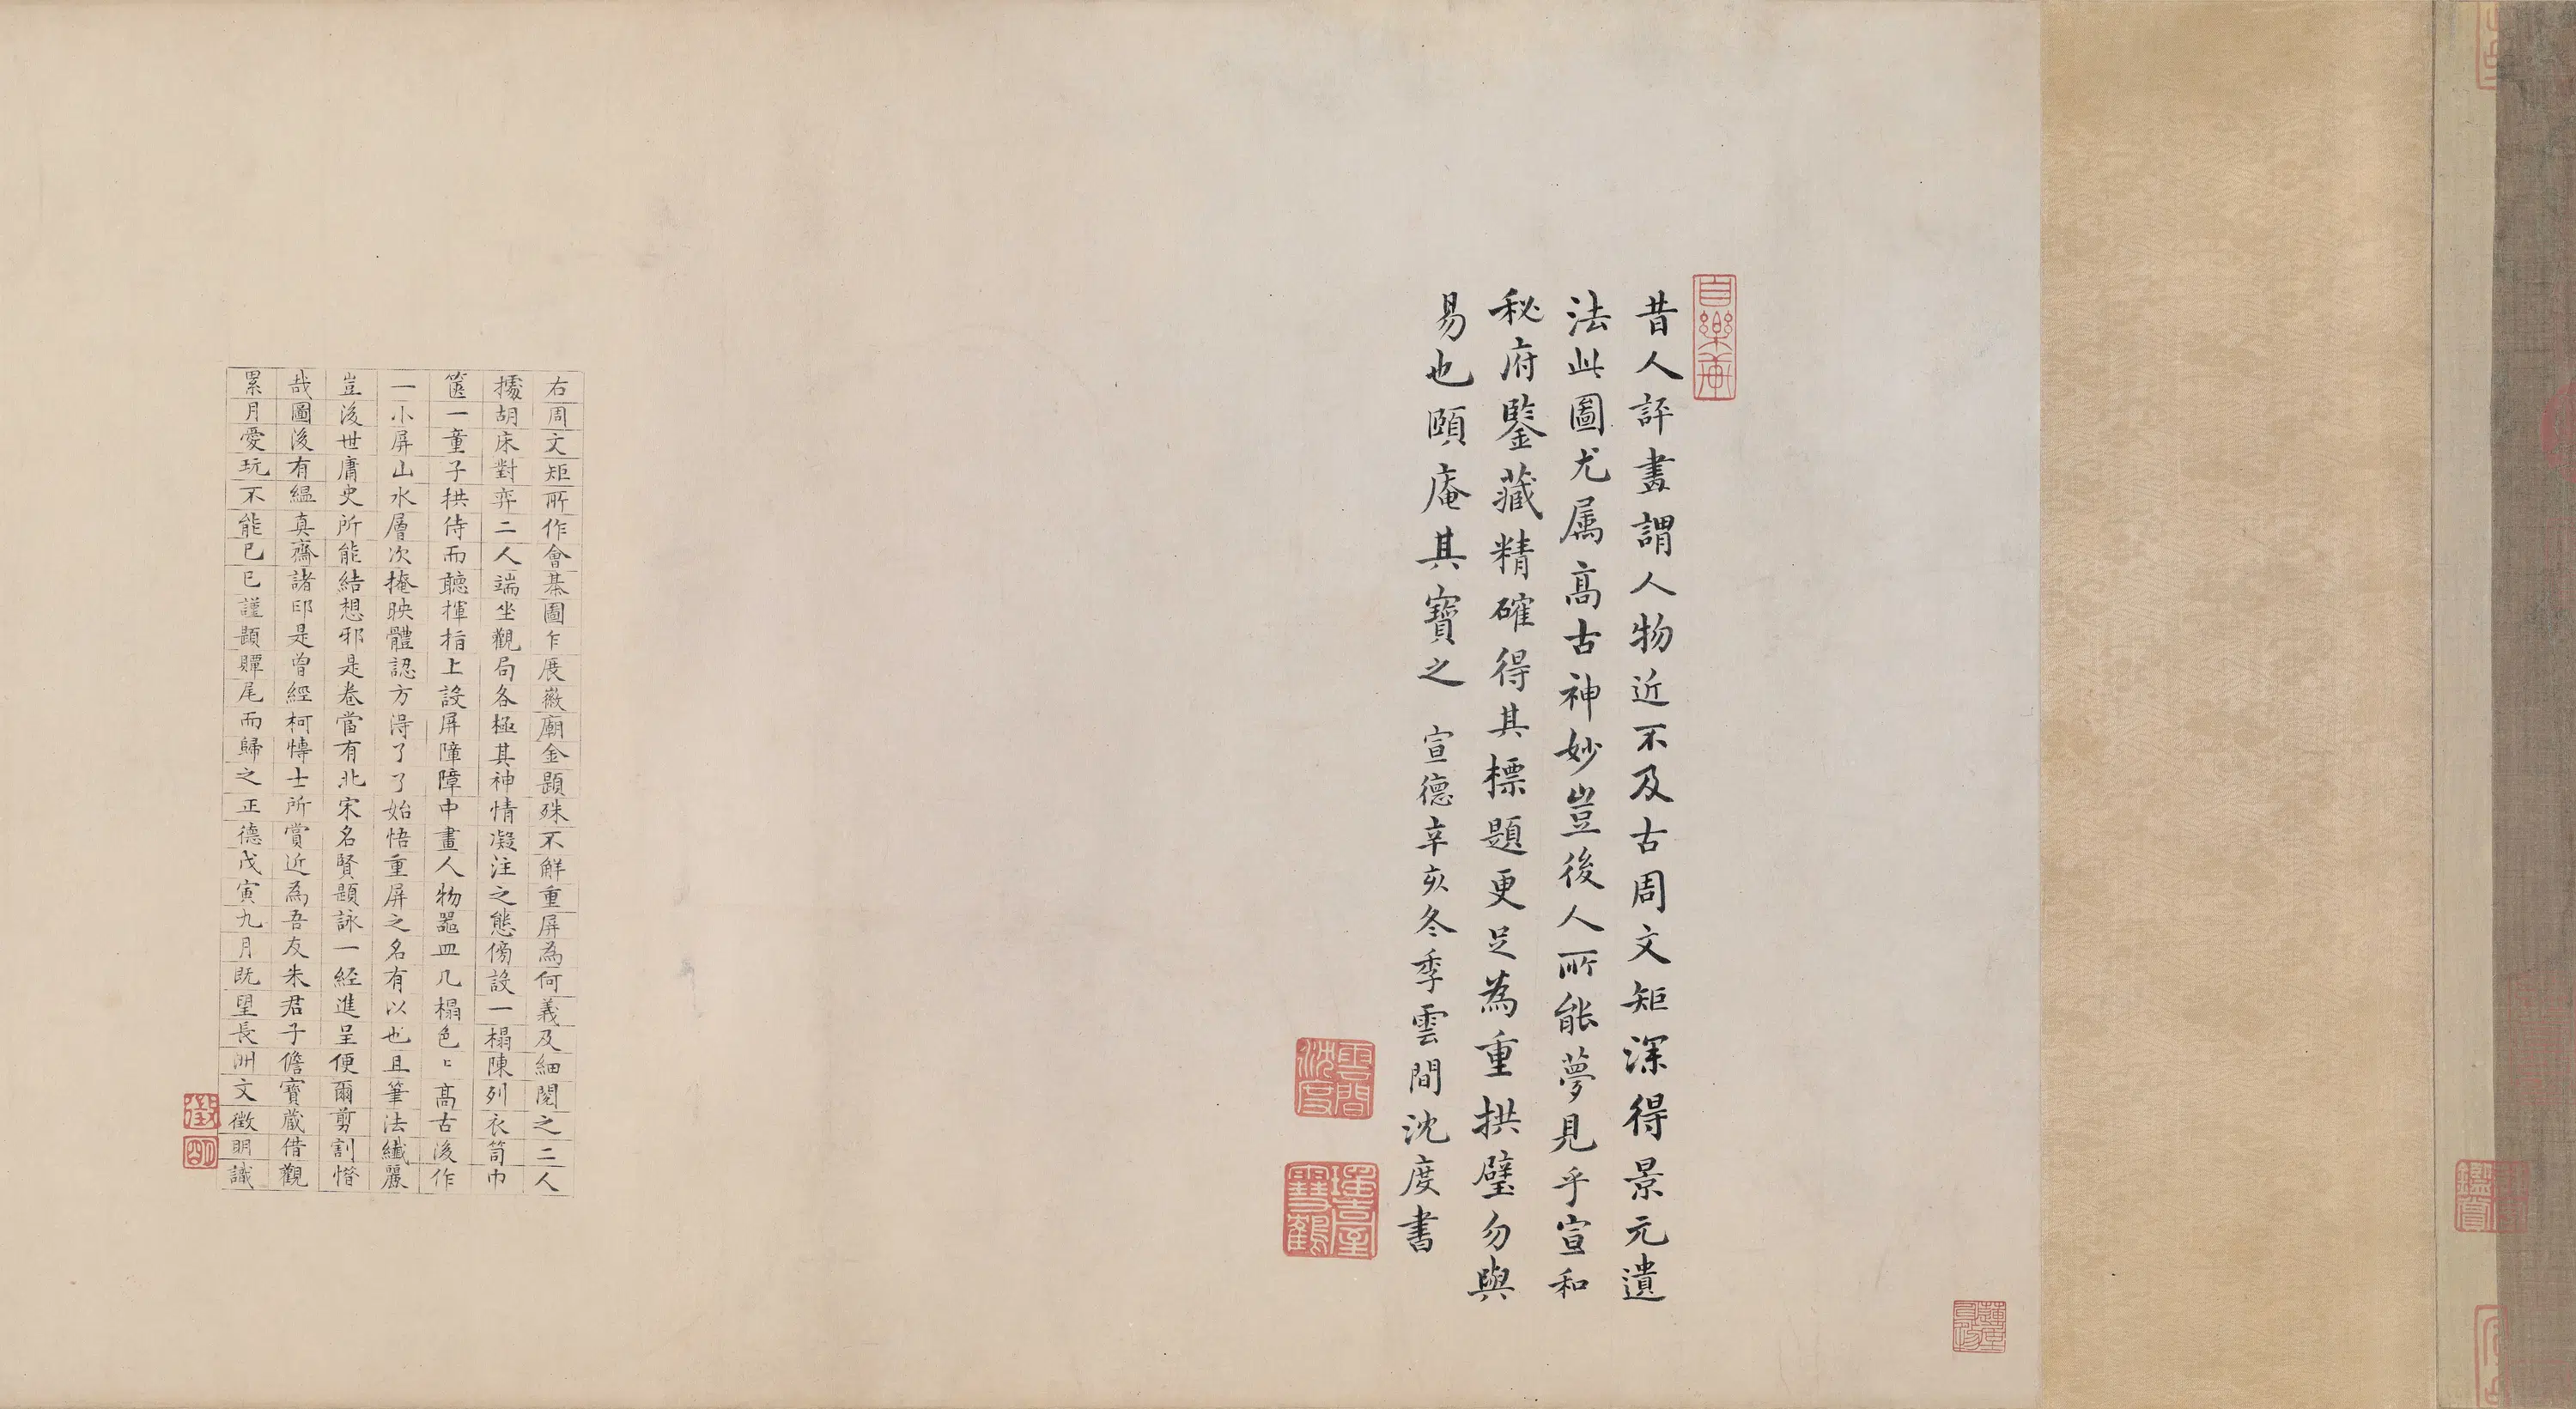 自樂菴
昔人評畫謂人物近不及古周文矩深得景元遺
法此圖尤属髙古神妙豈後人所能夢見乎宣和
秘府鑒藏精確得其標題更足為重拱璧勿與
易也頤庵其寶之 宣德辛亥冬季雲間沈度書
雲間沈度
右周文矩所作會棊圖乍展徽廟金題殊不觧重屏為何義及細閱之二人
據胡床對弈二人端坐觀局各極其神情凝注之態傍設一榻陳列衣笥巾
篋一童子拱侍而聽揮指上設屏障障中畫人物噐皿几榻色〻髙古後作
一小屏山水層次掩映體認方得了了始悟重屏之名有以也且筆法纖麗
豈後世庸史所能結想邪是卷當有北宋名賢題詠一經進呈便爾剪割惜
哉圖後有緼真齋諸印是曾經柯博士所賞近為吾友朱君子儋寶蔵借觀
累月愛玩不能已已謹題贉尾而歸之正德戊寅九月既望長洲文徵明識
徵
明
鑑賞